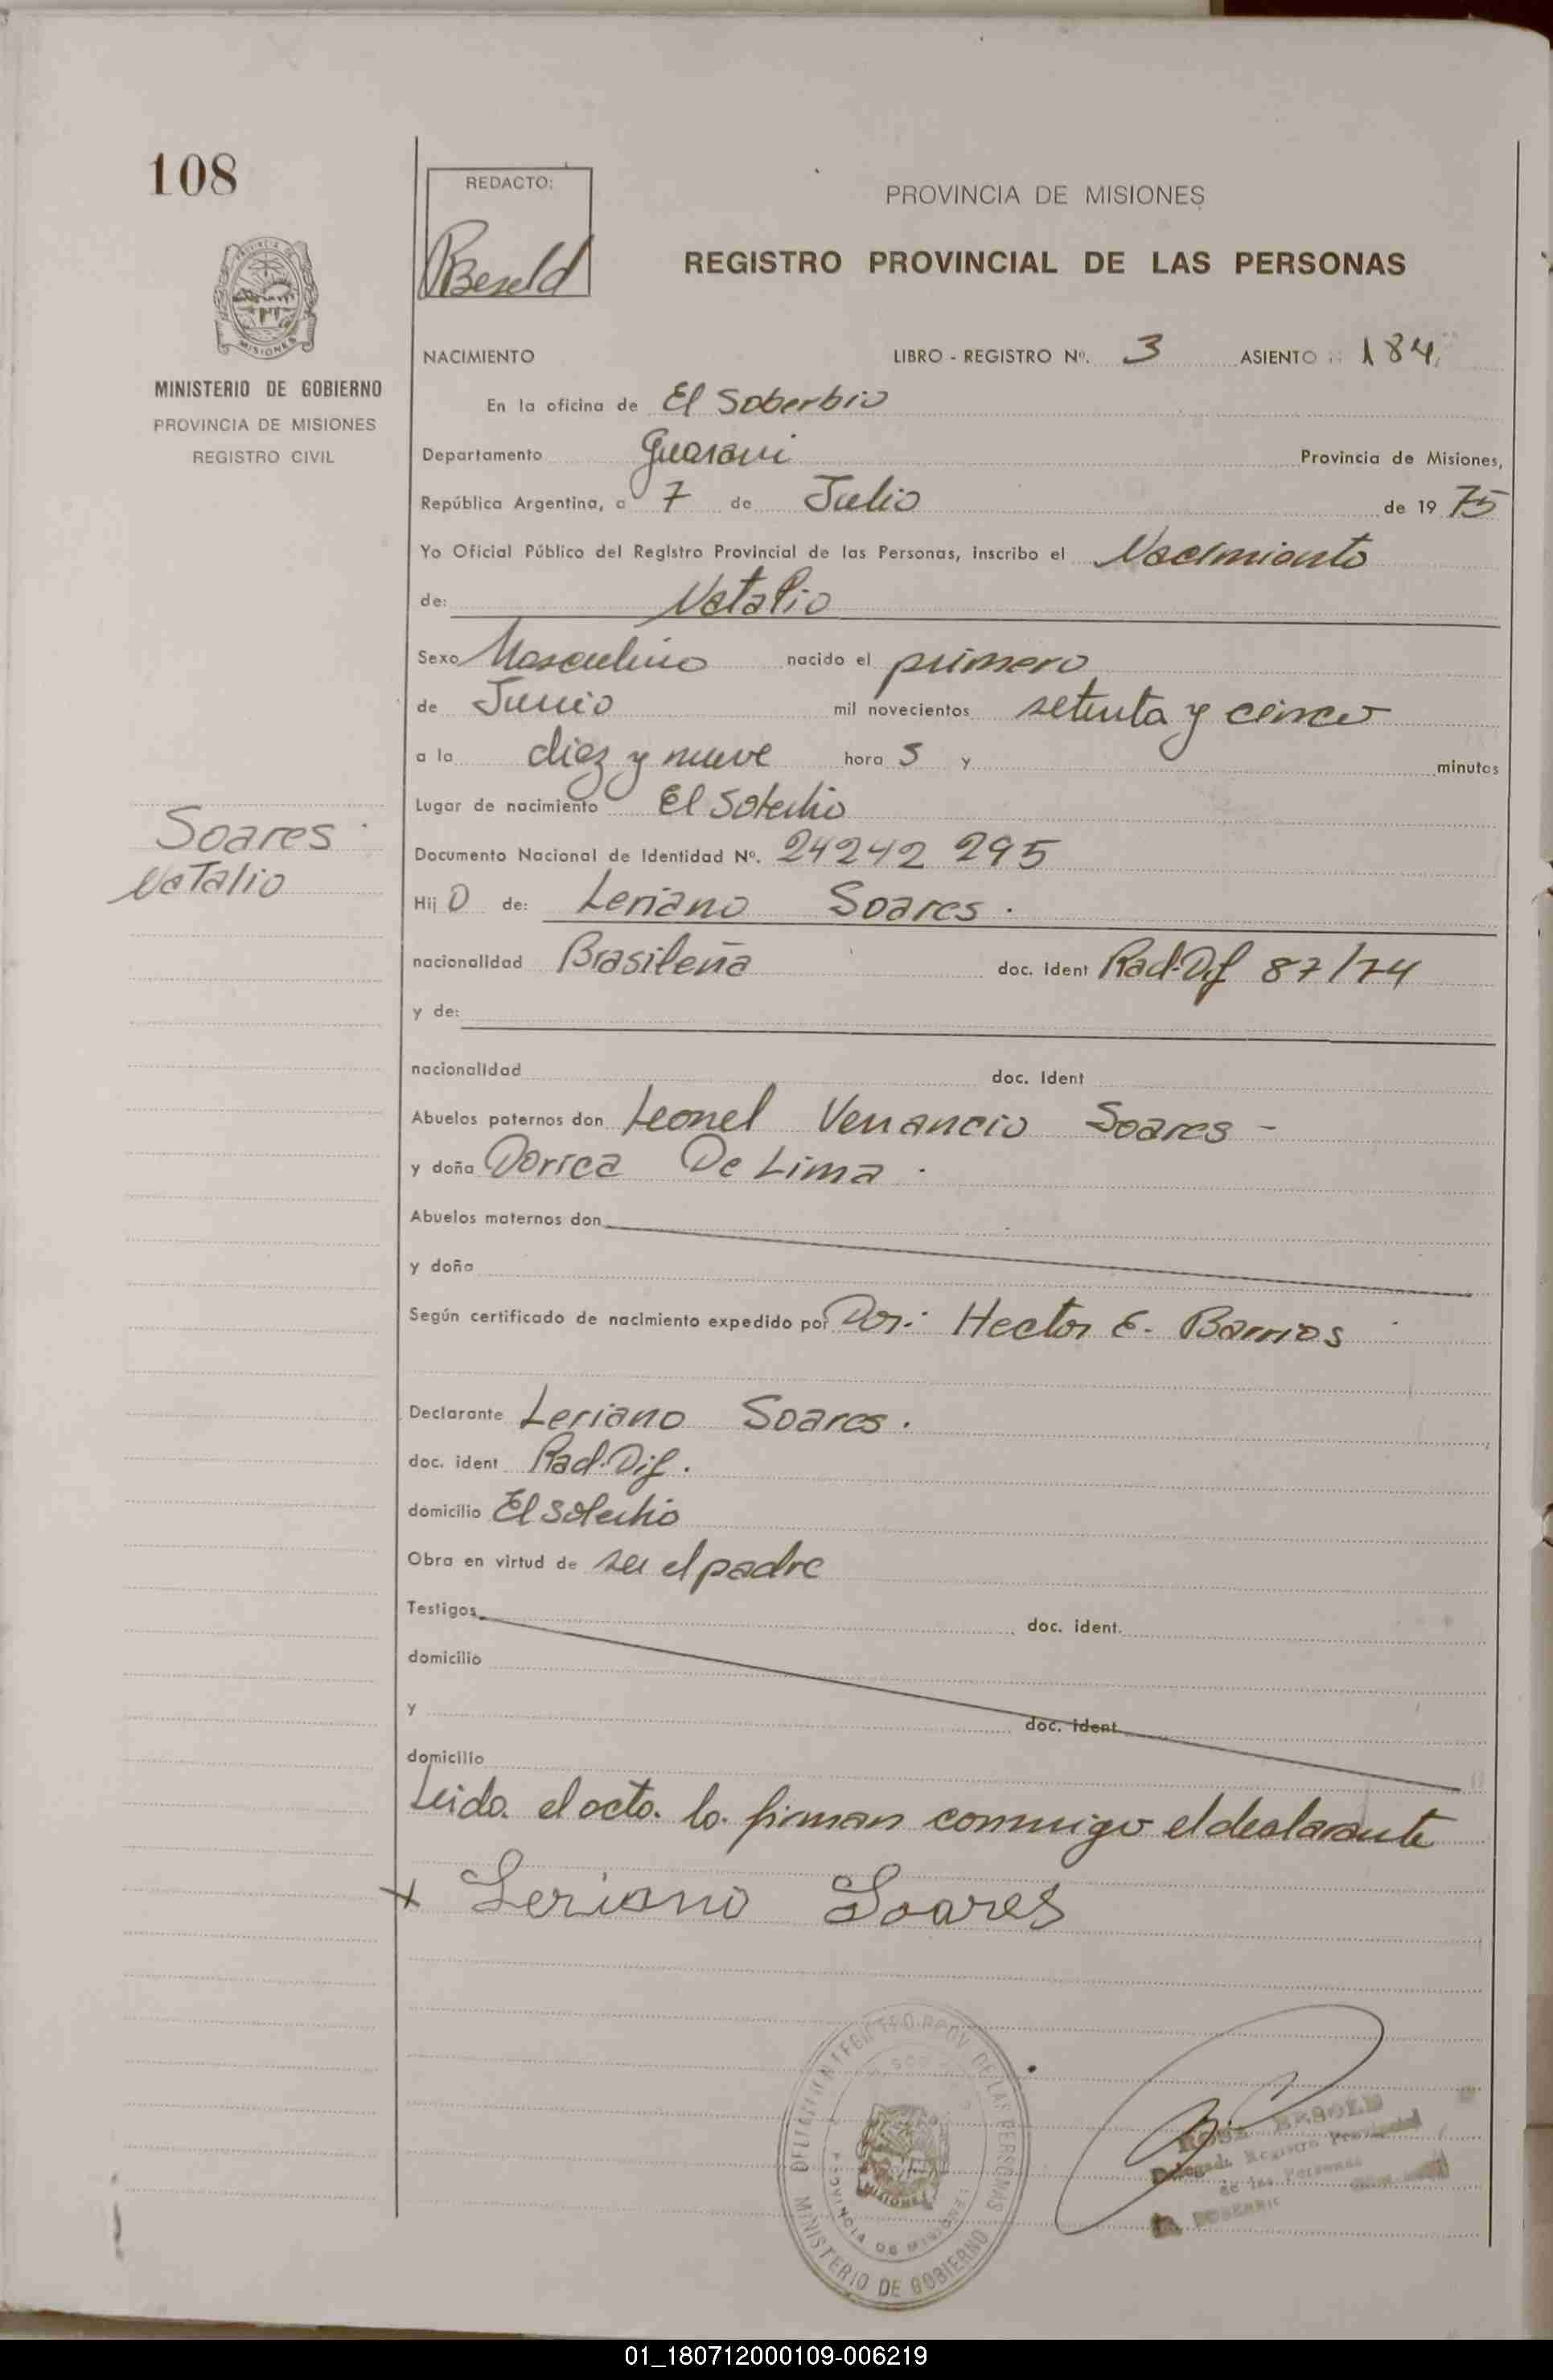 108
REDACTO:
PROVINCIA DE MISIONES
REGISTRO PROVINCIAL DE LAS PERSONAS
MISIONES
MINISTERIO DE GOBIERNO
PROVINCIA DE MISIONES
REGISTRO CIVIL
NACIMIENTO LIBRO - REGISTRO Nº. 3 ASIENTO 184
En la oficina de El Soberbio
Departamento Guarani Provincia de Misiones,
República Argentina, a 7 de Julio de 19 75
Yo Oficial Público del Registro Provincial de las Personas, inscribo el Nacimiento
de: Natalio
Sexo Masculino nacido el primero
de Junio mil novecientos setenta y cinco
a la diez y nueve hora s y minutos
Lugar de nacimiento El Soberbio
Soares
Natalio
Documento Nacional de Identidad Nº. 24242 295
Hij o de: Leriano Soares.
nacionalidad Brasileña doc. Ident Rad.Dif 87/74
y de:
nacionalidad doc. Ident
Abuelos paternos don Leonel Venancio Soares -
y doña Dorica De Lima.
Abuelos maternos don
y doña
Según certificado de nacimiento expedido por Hector E. Barrios
Declarante Leriano Soares.
doc. ident Rad.Dif.
domicilio El Soberbio
Obra en virtud de ser el padre
Testigos doc. ident.
domicilio
y doc. ident
domicilio
Leido el acto. lo. firman conmigo el declarante
x Leriano Soares
PROV. DE LAS PERSONAS
PROVINCIA DE MISIONES
MISIONES
MINISTERIO DE GOBIERNO
ROSA BESOLD
Delegada Registro Provincial
de las Personas
EL SOBERBIO
01_180712000109-006219